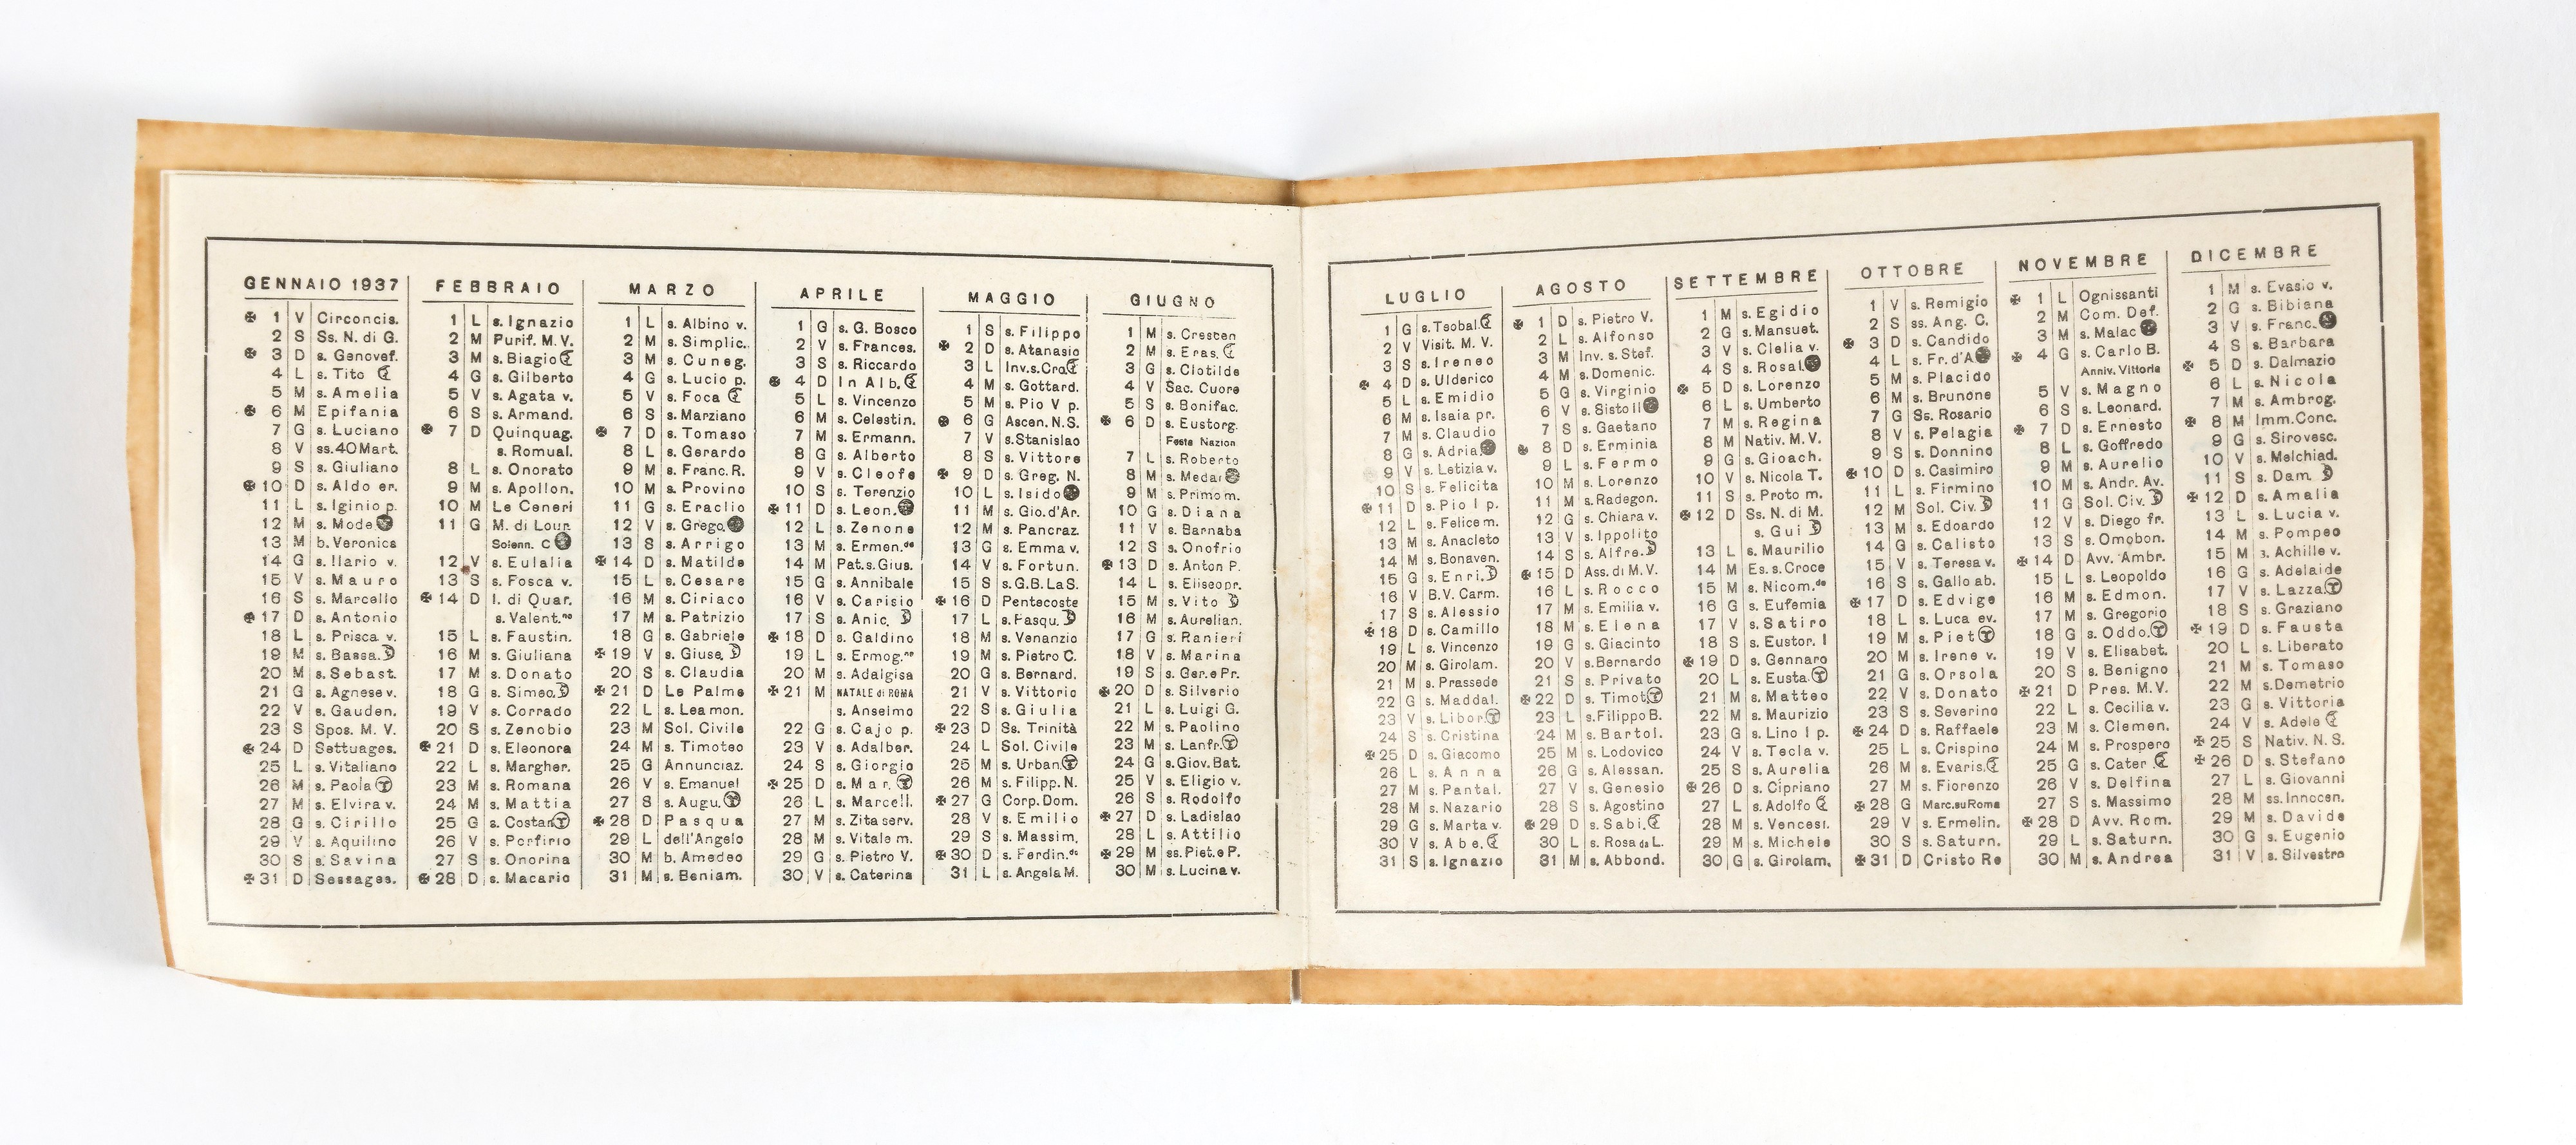 GENNAIO 1937
✠ 1 V Circoncis.
2 S Ss. N. di G.
✠ 3 D s. Genovef.
4 L s. Tito
5 M s. Amelia
✠ 6 M Epifania
7 G s. Luciano
8 V ss. 40 Mart.
9 S s. Giuliano
✠ 10 D s. Aldo er.
11 L s. Iginio p.
12 M s. Mode.
13 M b. Veronica
14 G s. Ilario v.
15 V s. Mauro
16 S s. Marcello
✠ 17 D s. Antonio
18 L s. Prisca v.
19 M s. Bassa.
20 M s. Sebast.
21 G s. Agnese v.
22 V s. Gauden.
23 S Spos. M. V.
✠ 24 D Settuages.
25 L s. Vitaliano
26 M s. Paola
27 M s. Elvira v.
28 G s. Cirillo
29 V s. Aquilino
30 S s. Savina
✠ 31 D Sessages.
FEBBRAIO
1 L s. Ignazio
2 M Purif. M. V.
3 M s. Biagio
4 G s. Gilberto
5 V s. Agata v.
6 S s. Armand.
✠ 7 D Quinquag.
s. Romual.
8 L s. Onorato
9 M s. Apollon.
10 M Le Ceneri
11 G M. di Lour.
Solenn. C
12 V s. Eulalia
13 S s. Fosca v.
✠ 14 D I. di Quar.
s. Valent.no
15 L s. Faustin.
16 M s. Giuliana
17 M s. Donato
18 G s. Simeo.
19 V s. Corrado
20 S s. Zenobio
✠ 21 D s. Eleonora
22 L s. Margher.
23 M s. Romana
24 M s. Mattia
25 G s. Costan
26 V s. Porfirio
27 S s. Onorina
✠ 28 D s. Macario
MARZO
1 L s. Albino v.
2 M s. Simplic.
3 M s. Cuneg.
4 G s. Lucio p.
5 V s. Foca
6 S s. Marziano
✠ 7 D s. Tomaso
8 L s. Gerardo
9 M s. Franc. R.
10 M s. Provino
11 G s. Eraclio
12 V s. Grego.
13 S s. Arrigo
✠ 14 D s. Matilde
15 L s. Cesare
16 M s. Ciriaco
17 M s. Patrizio
18 G s. Gabriele
✠ 19 V s. Giuse.
20 S s. Claudia
✠ 21 D Le Palme
22 L s. Lea mon.
23 M Sol. Civile
24 M s. Timoteo
25 G Annunciaz.
26 V s. Emanuel
27 S s. Augu.
✠ 28 D Pasqua
29 L dell'Angelo
30 M b. Amedeo
31 M s. Beniam.
APRILE
1 G s. G. Bosco
2 V s. Frances.
3 S s. Riccardo
✠ 4 D In Alb.
5 L s. Vincenzo
6 M s. Celestin.
7 M s. Ermann.
8 G s. Alberto
9 V s. Cleofe
10 S s. Terenzio
✠ 11 D s. Leon.
12 L s. Zenone
13 M s. Ermen.do
14 M Pat. s. Gius.
15 G s. Annibale
16 V s. Carisio
17 S s. Anic.
✠ 18 D s. Galdino
19 L s. Ermog.no
20 M s. Adalgisa
✠ 21 M NATALE di ROMA
s. Anselmo
22 G s. Cajo p.
23 V s. Adalber.
24 S s. Giorgio
✠ 25 D s. Mar.
26 L s. Marcell.
27 M s. Zita serv.
28 M s. Vitale m.
29 G s. Pietro V.
30 V s. Caterina
MAGGIO
1 S s. Filippo
✠ 2 D s. Atanasio
3 L Inv. s. Cro
4 M s. Gottard.
5 M s. Pio V p.
✠ 6 G Ascen. N. S.
7 V s. Stanislao
8 S s. Vittore
✠ 9 D s. Greg. N.
10 L s. Isido
11 M s. Gio. d'Ar.
12 M s. Pancraz.
13 G s. Emma v.
14 V s. Fortun.
15 S s. G. B. La S.
✠ 16 D Pentecoste
17 L s. Pasqu.
18 M s. Venanzio
19 M s. Pietro C.
20 G s. Bernard.
21 V s. Vittorio
22 S s. Giulia
✠ 23 D Ss. Trinità
24 L Sol. Civile
25 M s. Urban.
26 M s. Filipp. N.
✠ 27 G Corp. Dom.
28 V s. Emilio
29 S s. Massim.
✠ 30 D s. Ferdin.do
31 L s. Angela M.
GIUGNO
1 M s. Crescen
2 M s. Eras.
3 G s. Clotilde
4 V Sac. Cuore
5 S s. Bonifac.
✠ 6 D s. Eustorg.
Festa Nazion
7 L s. Roberto
8 M s. Medar
9 M s. Primo m.
10 G s. Diana
11 V s. Barnaba
12 S s. Onofrio
✠ 13 D s. Anton P.
14 L s. Eliseo pr.
15 M s. Vito
16 M s. Aurelian.
17 G s. Ranieri
18 V s. Marina
19 S s. Ger. e Pr.
✠ 20 D s. Silverio
21 L s. Luigi G.
22 M s. Paolino
23 M s. Lanfr.
24 G s. Giov. Bat.
25 V s. Eligio v.
26 S s. Rodolfo
✠ 27 D s. Ladislao
28 L s. Attilio
✠ 29 M ss. Piet. e P.
30 M s. Lucina v.
LUGLIO
1 G s. Teobal.
2 V Visit. M. V.
3 S s. Ireneo
✠ 4 D s. Ulderico
5 L s. Emidio
6 M s. Isaia pr.
7 M s. Claudio
8 G s. Adria.
9 V s. Letizia v.
10 S s. Felicita
✠ 11 D s. Pio I p.
12 L s. Felice m.
13 M s. Anacleto
14 M s. Bonaven.
15 G s. Enri.
16 V B. V. Carm.
17 S s. Alessio
✠ 18 D s. Camillo
19 L s. Vincenzo
20 M s. Girolam.
21 M s. Prassede
22 G s. Maddal.
23 V s. Libor.
24 S s. Cristina
✠ 25 D s. Giacomo
26 L s. Anna
27 M s. Pantal.
28 M s. Nazario
29 G s. Marta v.
30 V s. Abe.
31 S s. Ignazio
AGOSTO
✠ 1 D s. Pietro V.
2 L s. Alfonso
3 M Inv. s. Stef.
4 M s. Domenic.
5 G s. Virginio
6 V s. Sisto II
7 S s. Gaetano
✠ 8 D s. Erminia
9 L s. Fermo
10 M s. Lorenzo
11 M s. Radegon.
12 G s. Chiara v.
13 V s. Ippolito
14 S s. Alfre.
✠ 15 D Ass. di M. V.
16 L s. Rocco
17 M s. Emilia v.
18 M s. Elena
19 G s. Giacinto
20 V s. Bernardo
21 S s. Privato
✠ 22 D s. Timot.
23 L s. Filippo B.
24 M s. Bartol.
25 M s. Lodovico
26 G s. Alessan.
27 V s. Genesio
28 S s. Agostino
✠ 29 D s. Sabi.
30 L s. Rosa da L.
31 M s. Abbond.
SETTEMBRE
1 M s. Egidio
2 G s. Mansuet.
3 V s. Clelia v.
4 S s. Rosal.
✠ 5 D s. Lorenzo
6 L s. Umberto
7 M s. Regina
8 M Nativ. M. V.
9 G s. Gioach.
10 V s. Nicola T.
11 S s. Proto m.
✠ 12 D Ss. N. di M.
s. Gui
13 L s. Maurilio
14 M Es. s. Croce
15 M s. Nicom.de
16 G s. Eufemia
17 V s. Satiro
18 S s. Eustor. I
✠ 19 D s. Gennaro
20 L s. Eusta.
21 M s. Matteo
22 M s. Maurizio
23 G s. Lino I p.
24 V s. Tecla v.
25 S s. Aurelia
✠ 26 D s. Cipriano
27 L s. Adolfo
28 M s. Vencesl.
29 M s. Michele
30 G s. Girolam.
OTTOBRE
1 V s. Remigio
2 S ss. Ang. C.
✠ 3 D s. Candido
4 L s. Fr. d'A
5 M s. Placido
6 M s. Brunone
7 G Ss. Rosario
8 V s. Pelagia
9 S s. Donnino
✠ 10 D s. Casimiro
11 L s. Firmino
12 M Sol. Civ.
13 M s. Edoardo
14 G s. Calisto
15 V s. Teresa v.
16 S s. Gallo ab.
✠ 17 D s. Edvige
18 L s. Luca ev.
19 M s. Piet
20 M s. Irene v.
21 G s. Orsola
22 V s. Donato
23 S s. Severino
✠ 24 D s. Raffaele
25 L s. Crispino
26 M s. Evaris.
27 M s. Fiorenzo
✠ 28 G Marc. su Roma
29 V s. Ermelin.
30 S s. Saturn.
✠ 31 D Cristo Re
NOVEMBRE
✠ 1 L Ognissanti
2 M Com. Def.
3 M s. Malac
✠ 4 G s. Carlo B.
Anniv. Vittoria
5 V s. Magno
6 S s. Leonard.
✠ 7 D s. Ernesto
8 L s. Goffredo
9 M s. Aurelio
10 M s. Andr. Av.
11 G Sol. Civ.
12 V s. Diego fr.
13 S s. Omobon.
✠ 14 D Avv. Ambr.
15 L s. Leopoldo
16 M s. Edmon.
17 M s. Gregorio
18 G s. Oddo.
19 V s. Elisabet.
20 S s. Benigno
✠ 21 D Pres. M. V.
22 L s. Cecilia v.
23 M s. Clemen.
24 M s. Prospero
25 G s. Cater
26 V s. Delfina
27 S s. Massimo
✠ 28 D Avv. Rom.
29 L s. Saturn.
30 M s. Andrea
DICEMBRE
1 M s. Evasio v.
2 G s. Bibiana
3 V s. Franc.
4 S s. Barbara
✠ 5 D s. Dalmazio
6 L s. Nicola
7 M s. Ambrog.
✠ 8 M Imm. Conc.
9 G s. Sirovesc.
10 V s. Melchiad.
11 S s. Dam.
✠ 12 D s. Amalia
13 L s. Lucia v.
14 M s. Pompeo
15 M s. Achille v.
16 G s. Adelaide
17 V s. Lazza
18 S s. Graziano
✠ 19 D s. Fausta
20 L s. Liberato
21 M s. Tomaso
22 M s. Demetrio
23 G s. Vittoria
24 V s. Adele
✠ 25 S Nativ. N. S.
✠ 26 D s. Stefano
27 L s. Giovanni
28 M ss. Innocen.
29 M s. Davide
30 G s. Eugenio
31 V s. Silvestro